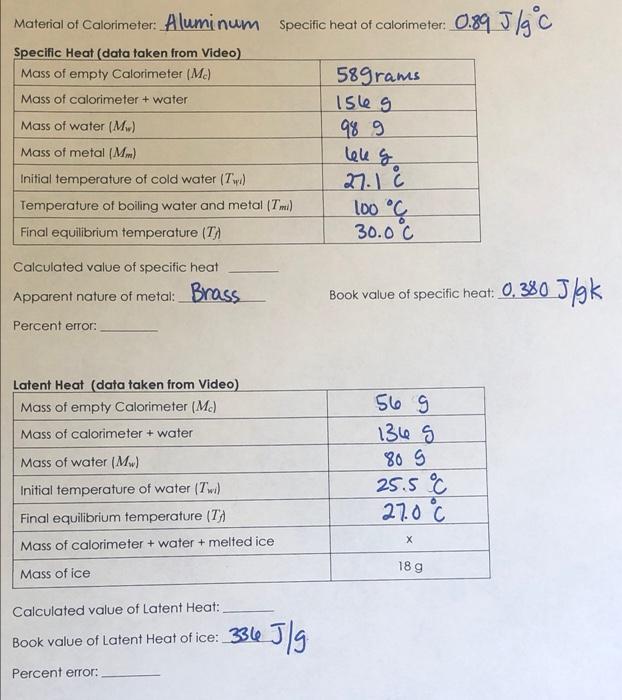 Material of Calorimeter: Aluminum Specific heat of calorimeter: 0.89 J/g°C
Specific Heat (data taken from Video)
Mass of empty Calorimeter (Mc) 58grams
Mass of calorimeter + water 156 g
Mass of water (Mw) 98 g
Mass of metal (Mm) 66 g
Initial temperature of cold water (Twi) 27.1 °C
Temperature of boiling water and metal (Tmi) 100 °C
Final equilibrium temperature (Tf) 30.0 °C
Calculated value of specific heat
Apparent nature of metal: Brass Book value of specific heat: 0.380 J/gk
Percent error:
Latent Heat (data taken from Video)
Mass of empty Calorimeter (Mc) 56 g
Mass of calorimeter + water 136 g
Mass of water (Mw) 80 g
Initial temperature of water (Twi) 25.5 °C
Final equilibrium temperature (Tf) 27.0 °C
Mass of calorimeter + water + melted ice x
Mass of ice 18 g
Calculated value of Latent Heat:
Book value of Latent Heat of ice: 336 J/g
Percent error: